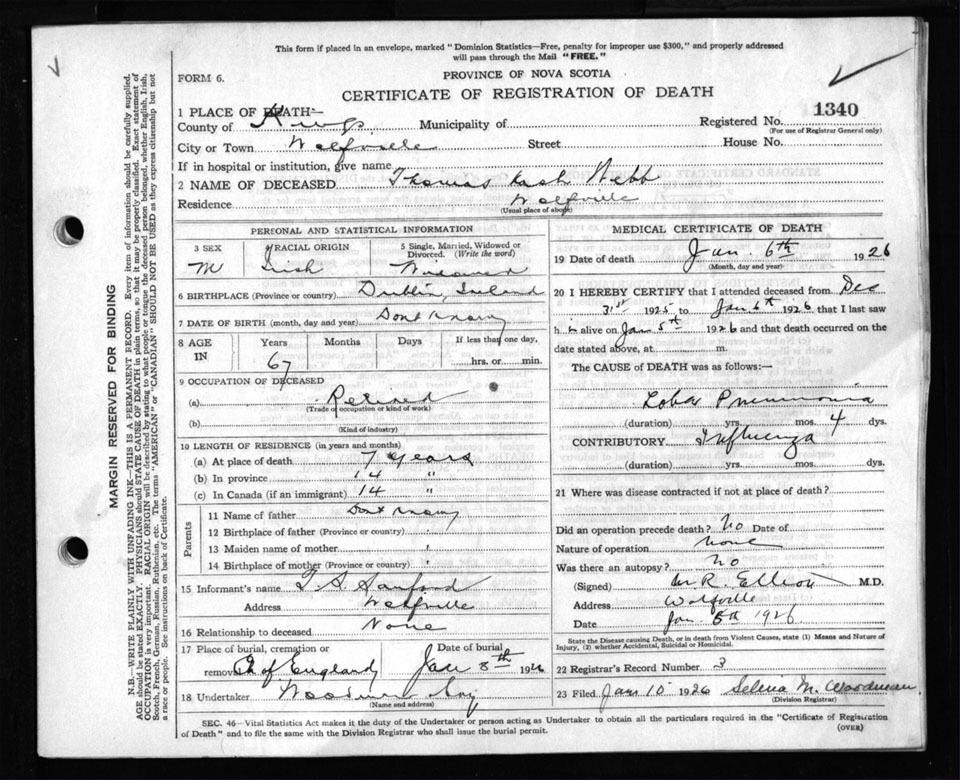 This form if placed in an envelope, marked "Dominion Statistics—Free, penalty for improper use $300," and properly addressed
will pass through the Mail "FREE."
FORM 6.
PROVINCE OF NOVA SCOTIA
CERTIFICATE OF REGISTRATION OF DEATH
1 PLACE OF DEATH—
Registered No. 1340
County of Kings Municipality of
(For use of Registrar General only)
City or Town Wolfville Street House No.
If in hospital or institution, give name
2 NAME OF DECEASED Thomas Webb
Residence Wolfville
(Usual place of abode)
PERSONAL AND STATISTICAL INFORMATION
3 SEX M
4 RACIAL ORIGIN Irish
5 Single, Married, Widowed or
Divorced. (Write the word)
Widowed
6 BIRTHPLACE (Province or country) Dublin, Ireland
7 DATE OF BIRTH (month, day and year) Dont Know
8 AGE
IN
Years Months Days If less than one day,
67 hrs. or min.
9 OCCUPATION OF DECEASED
(a) Retired
(Trade or occupation or kind of work)
(b)
(Kind of industry)
10 LENGTH OF RESIDENCE (in years and months)
(a) At place of death 7 years
(b) In province 14 "
(c) In Canada (if an immigrant) 14 "
Parents
11 Name of father Dont Know
12 Birthplace of father (Province or country)
13 Maiden name of mother "
14 Birthplace of mother (Province or country) "
15 Informant's name Sanford
Address Wolfville
16 Relationship to deceased None
17 Place of burial, cremation or Date of burial
removal Ch of England Jan 8th 1926
18 Undertaker
(Name and address)
MEDICAL CERTIFICATE OF DEATH
19 Date of death Jan. 6th 1926
(Month, day and year)
20 I HEREBY CERTIFY that I attended deceased from Dec
31st 1925 to Jan 6th 1926 that I last saw
him alive on Jan 5th 1926 and that death occurred on the
date stated above, at m.
The CAUSE of DEATH was as follows:—
Lobar Pneumonia
(duration) yrs. mos. 4 dys.
CONTRIBUTORY Influenza
(duration) yrs. mos. dys.
21 Where was disease contracted if not at place of death?
Did an operation precede death? No Date of
Nature of operation None
Was there an autopsy? No
(Signed) M.R. Elliott M.D.
Address Wolfville
Date Jan. 1926
State the Disease causing Death, or in death from Violent Causes, state (1) Means and Nature of
Injury, (2) whether Accidental, Suicidal or Homicidal.
22 Registrar's Record Number 3
23 Filed Jan 10 1926 Selena M. Woodman
(Division Registrar)
SEC. 46—Vital Statistics Act makes it the duty of the Undertaker or person acting as Undertaker to obtain all the particulars required in the "Certificate of Registration
of Death" and to file the same with the Division Registrar who shall issue the burial permit.
(OVER)
MARGIN RESERVED FOR BINDING
N.B.—WRITE PLAINLY WITH UNFADING INK—THIS IS A PERMANENT RECORD. Every item of information should be carefully supplied.
AGE should be stated EXACTLY. PHYSICIANS should STATE CAUSE OF DEATH in plain terms, so that it may be properly classified. Exact statement of
OCCUPATION is very important. RACIAL ORIGIN will be described by stating to what people or tongue the deceased person belonged, whether English, Irish,
Scotch, French, German, Russian, Ruthenian, etc. The terms "AMERICAN" or "CANADIAN" SHOULD NOT BE USED as they express citizenship but not
a race or people. See instructions on back of Certificate.